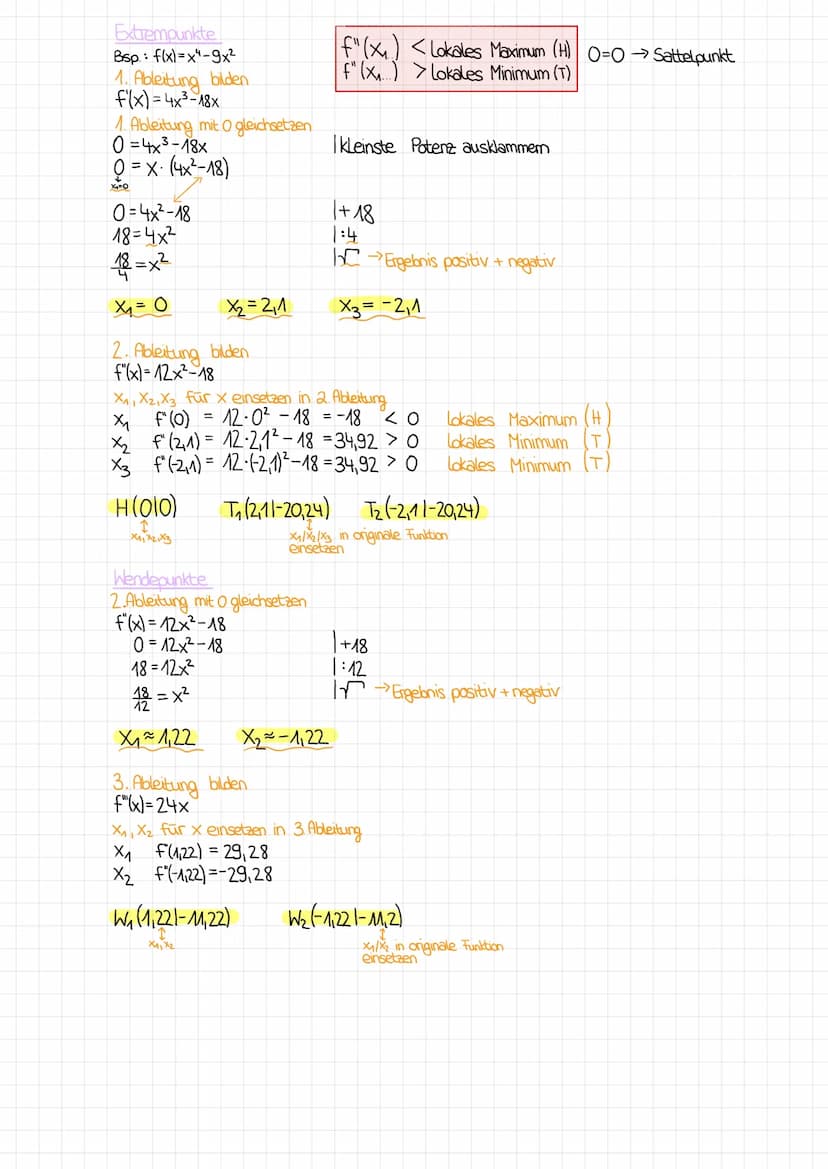 Extrempunkte
Bsp.: f(x)=x⁴-9x²
f''(x₁ ) < Lokales Maximum (H)
f''(x₁...) > Lokales Minimum (T)
0=0 → Sattelpunkt
1. Ableitung bilden
f'(x)=4x³-18x
1. Ableitung mit 0 gleichsetzen
0=4x³-18x |kleinste Potenz ausklammern
0 = x· (4x²-18)
x₁=0
0=4x²-18 |+18
18=4x² |:4
18/4=x² |√ →Ergebnis positiv + negativ
x₁= 0 x₂=2,1 x₃= -2,1
2. Ableitung bilden
f''(x)=12x²-18
x₁, x₂, x₃ für x einsetzen in 2. Ableitung
x₁ f''(0) = 12·0² - 18 = -18 < 0 Lokales Maximum (H)
x₂ f''(2,1)= 12·2,1² - 18 =34,92 > 0 Lokales Minimum (T)
x₃ f''(-2,1)= 12·(-2,1)²-18=34,92 > 0 Lokales Minimum (T)
H(0|0) T₁(2,1|-20,24) T₂(-2,1|-20,24)
↕ ↕
x₁,x₂,x₃ x₁/x₂/x₃ in originale Funktion
einsetzen
Wendepunkte
2. Ableitung mit 0 gleichsetzen
f''(x)=12x²-18
0=12x²-18 |+18
18=12x² |:12
18/12 = x² |√ →Ergebnis positiv + negativ
x₁≈1,22 x₂≈-1,22
3. Ableitung bilden
f'''(x)=24x
x₁, x₂ für x einsetzen in 3. Ableitung
x₁ f'(1,22) = 29,28
x₂ f''(-1,22)=-29,28
W₁(1,22|-11,22) W₂(-1,22|-11,2)
↕ ↕
x₁,x₂ x₁/x₂ in originale Funktion
einsetzen